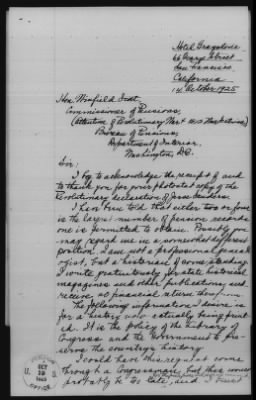 Hotel Graystone
66 Geary Street
San Francisco
California
14 October 1925
Hon. Winfield Scott,
Commissioner of Pensions,
(Attention of Revolutionary War
Bureau of Pensions,
Department of Interior,
Washington, D.C.
Sir:
I beg to acknowledge the receipt of and
to thank you for your photostat copy of the
Revolutionary declaration of Jesse
I have been told that either two or four
is the largest number of pension records
one is permitted to obtain. Possibly you
may regard me in a somewhat different
position. I am not a professional geneal-
ogist, but a historian of some standing.
I write gratuitously for state historical
magazines and other publications, and
receive no financial return therefrom.
The following information I desire is
for a history now actually being print
ed. It is the policy of the Library of
Congress and the Government to pre-
serve the country's history.
I could have this request come
through a Congressman, but this would
probably be too late, and I trust
OCT
19
1925
U.
S.